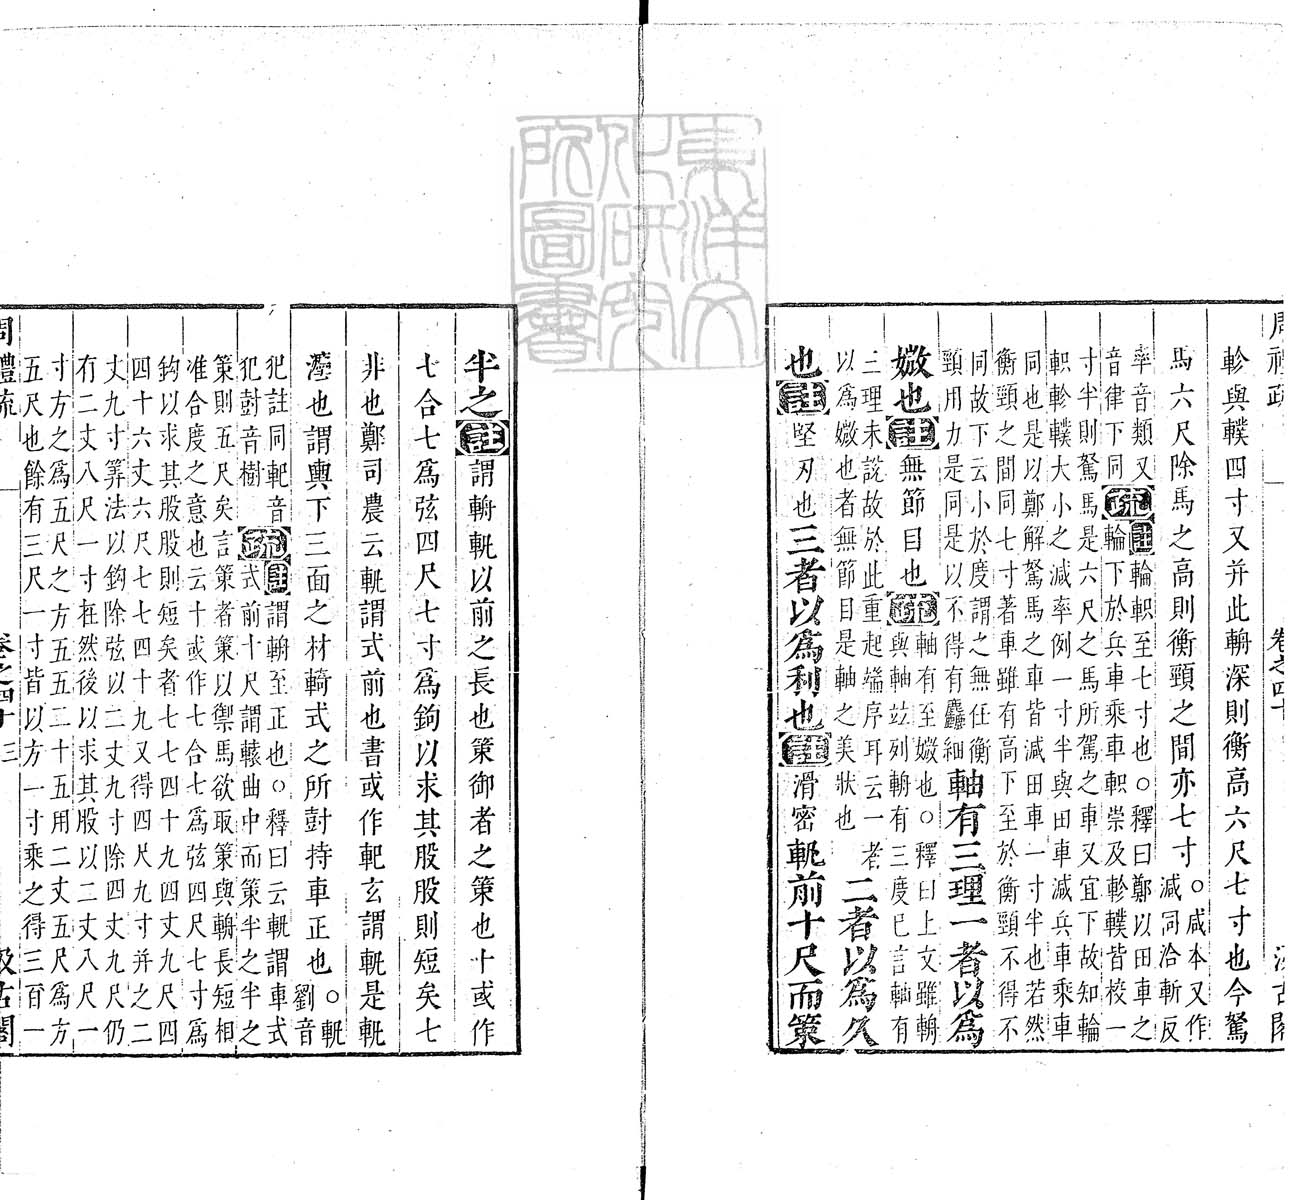 周禮疏 卷之四十 汲古閣
軫與轐四寸又并此輈深則衡高六尺七寸也今駑
馬六尺除馬之高則衡頸之間亦七寸○咸本又作
減同洽斬反
率音類又
音律下同
疏
註輪軹至七寸也○釋曰鄭以田車之
輪下於兵車乘車軹崇及軫轐皆校一
寸半則駑馬是六尺之馬所駕之車又宜下故知輪
軹軫轐大小之減率例一寸半與田車減兵車乘車
同也是以鄭解駑馬之車皆減田車一寸半也若然
衡頸之間同七寸著車雖有高下至於衡頸不得不
同故下云小於度謂之無任衡
頸用力是同是以不得有麤細
軸有三理一者以為
媺也註無節目也疏
軸有至媺也○釋曰上文雖輈
與軸竝列輈有三度已言軸有
三理未說故於此重起緒序耳云一者
以為媺也者無節目是軸之美狀也
二者以為久
也註堅刃也三者以為利也註滑密軓前十尺而策
半之註謂輈軓以前之長也策御者之策也十或作
七合七為弦四尺七寸為鉤以求其股股則短矣七
非也鄭司農云軓謂式前也書或作𨊠玄謂軓是軓
灋也謂輿下三面之材輢式之所尌持車正也○軓
劉音
犯註同𨊠音
犯尌音樹
疏
註謂輈至正也○釋曰云軓謂車式
式前十尺謂轅曲中而策半之半之
策則五尺矣言策者策以禦馬欲取策與輈長短相
准合度之意也云十或作七合七為弦四尺七寸為
鉤以求其股股則短矣者七七四十九四丈九尺四
四十六丈六尺七七四十九又得四尺九寸并之二
丈九寸筭法以鉤除弦以二丈九寸除四丈九尺仍
有二丈八尺一寸在然後以求其股以二丈八尺一
寸方之為五尺之方五五二十五用二丈五尺為方
五尺也餘有三尺一寸皆以方一寸乘之得三百一
周禮疏 卷之四十 三 汲古閣
東洋文
化研究
所圖書